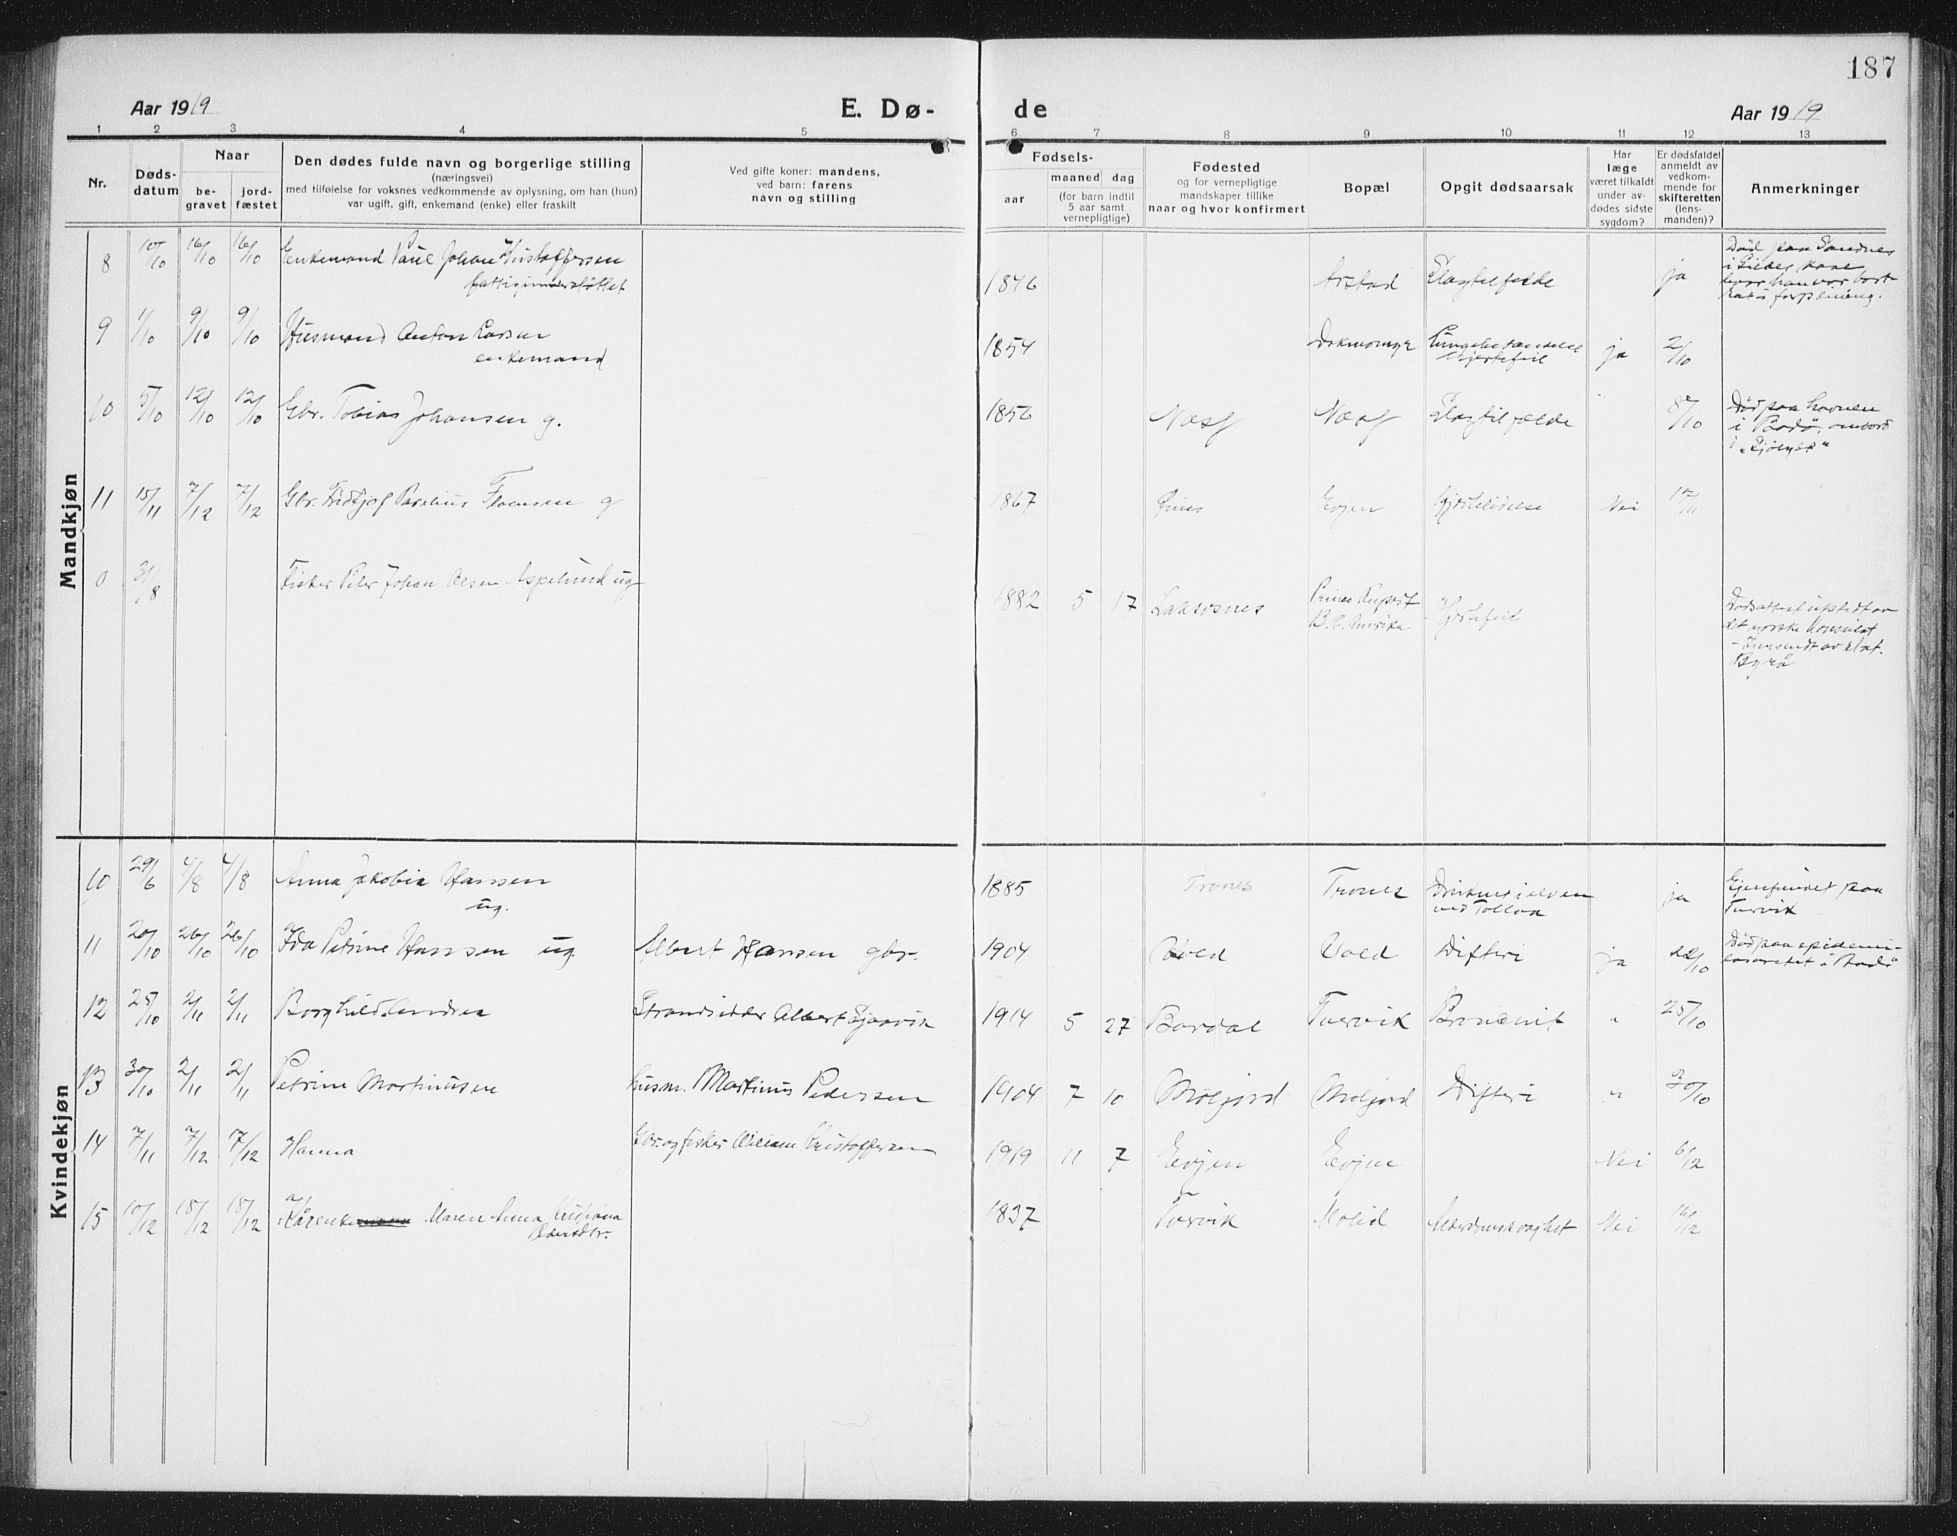 187
Aar 1919
E. Dø-
de
Aar 1919
1 2 3 4 5 6 7 8 9 10 11 12 13
Nr.
Døds-
datum
Naar
be-
gravet
jord-
fæstet
Den dødes fulde navn og borgerlige stilling
(næringsvei)
med tilføielse for voksnes vedkommende av oplysning, om han (hun)
var ugift, gift, enkemand (enke) eller fraskilt
Ved gifte koner: mandens,
ved barn: farens
navn og stilling
Fødsels-
aar
maaned
dag
(for barn indtil
5 aar samt
vernepligtige)
Fødested
og for vernepligtige
mandskaper tillike
naar og hvor konfirmert
Bopæl
Opgit dødsaarsak
Har
læge
været tilkaldt
under av-
dødes sidste
sygdom?
Er dødsfaldet
anmeldt av
vedkom-
mende for
skifteretten
(lens-
manden)?
Anmerkninger
Mandkjøn
8 10/10 16/10 16/10 Enkemand Paul Johan Kristoffersen
fattigunderstøttet
1846 Arstad Slagtilfelde ja
Død paa Sandnes
i
hvor han var bort
sat i forpleining.
9 1/10 9/10 9/10 Husmand Anton Larsen
enkemand
1854 Lungebetændelse
Hjertefeil
ja 2/10
10 5/10 12/10 12/10 Gbr. Tobias Johansen g.
1856 Næss Næss Slagtilfælde " 8/10
Død paa havnen
i Bodø, ombord
i
11 15/11 7/12 7/12 Gbr. Fridtjof g
1867 Evjen Hjertelidelse Nei 17/11
0 31/8 Fisker Peder Johan Olsen Aspelund ug
1882 5 17 Laksosnes
Prince Rupert
B. C. Amerika
Hjertefeil
Dødsattest utstedt av
det norske Konsulat
- Innsendt av stat.
Byrå
Kvindekjøn
10 29/6 4/8 4/8 Anna Jakobia Hansen
ug.
1885 Trones Trones Druknet i elven
ved
ja
Gjenfundet paa
Tuvvik
11 20/10 26/10 26/10 Ida Petrine Hansen ug. Albert Hansen gbr.
1904 Vold Vold Difteri ja 22/10
Død paa epidemi-
lasarettet i Bodø
12 25/10 2/11 2/11 Borghild Andrea Strandsidder Albert Sjaavik
1914 5 27 Bardal Tuvvik Bronchit " 25/10
13 30/10 2/11 2/11 Petrine Martinusen husm. Martinus Pedersen
1904 7 10 Moljord Moljord Difteri " 30/10
14 7/11 7/12 7/12 Hanna Gbr. og fisker William Kristoffersen
1919 11 7 Evjen Evjen Nei 6/12
15 10/12 18/12 18/12 Maren Anna Kristiana
1837 Tuvvik Molid Alderdomssvaghet Nei 16/12